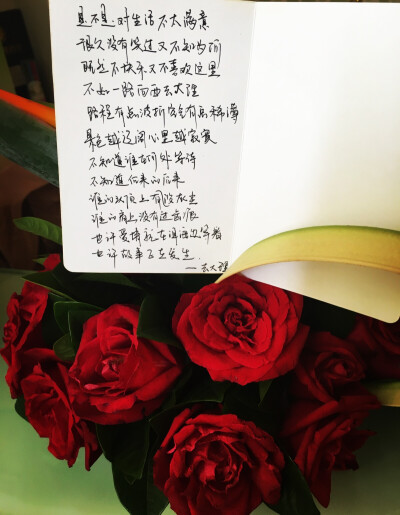 是不是.对生活不太满意
很久没有笑过又不知为何
既然不快乐又不喜欢这里
不如一路向西去大理
路程有点波折空气有点稀薄
景色越辽阔心里越寂寞
不知道谁在何处等待
不知道后来的后来
谁的头顶上没有灰尘
谁的肩上没有过齿痕
也许爱情就在洱海边等着
也许故事正在发生
—去大理